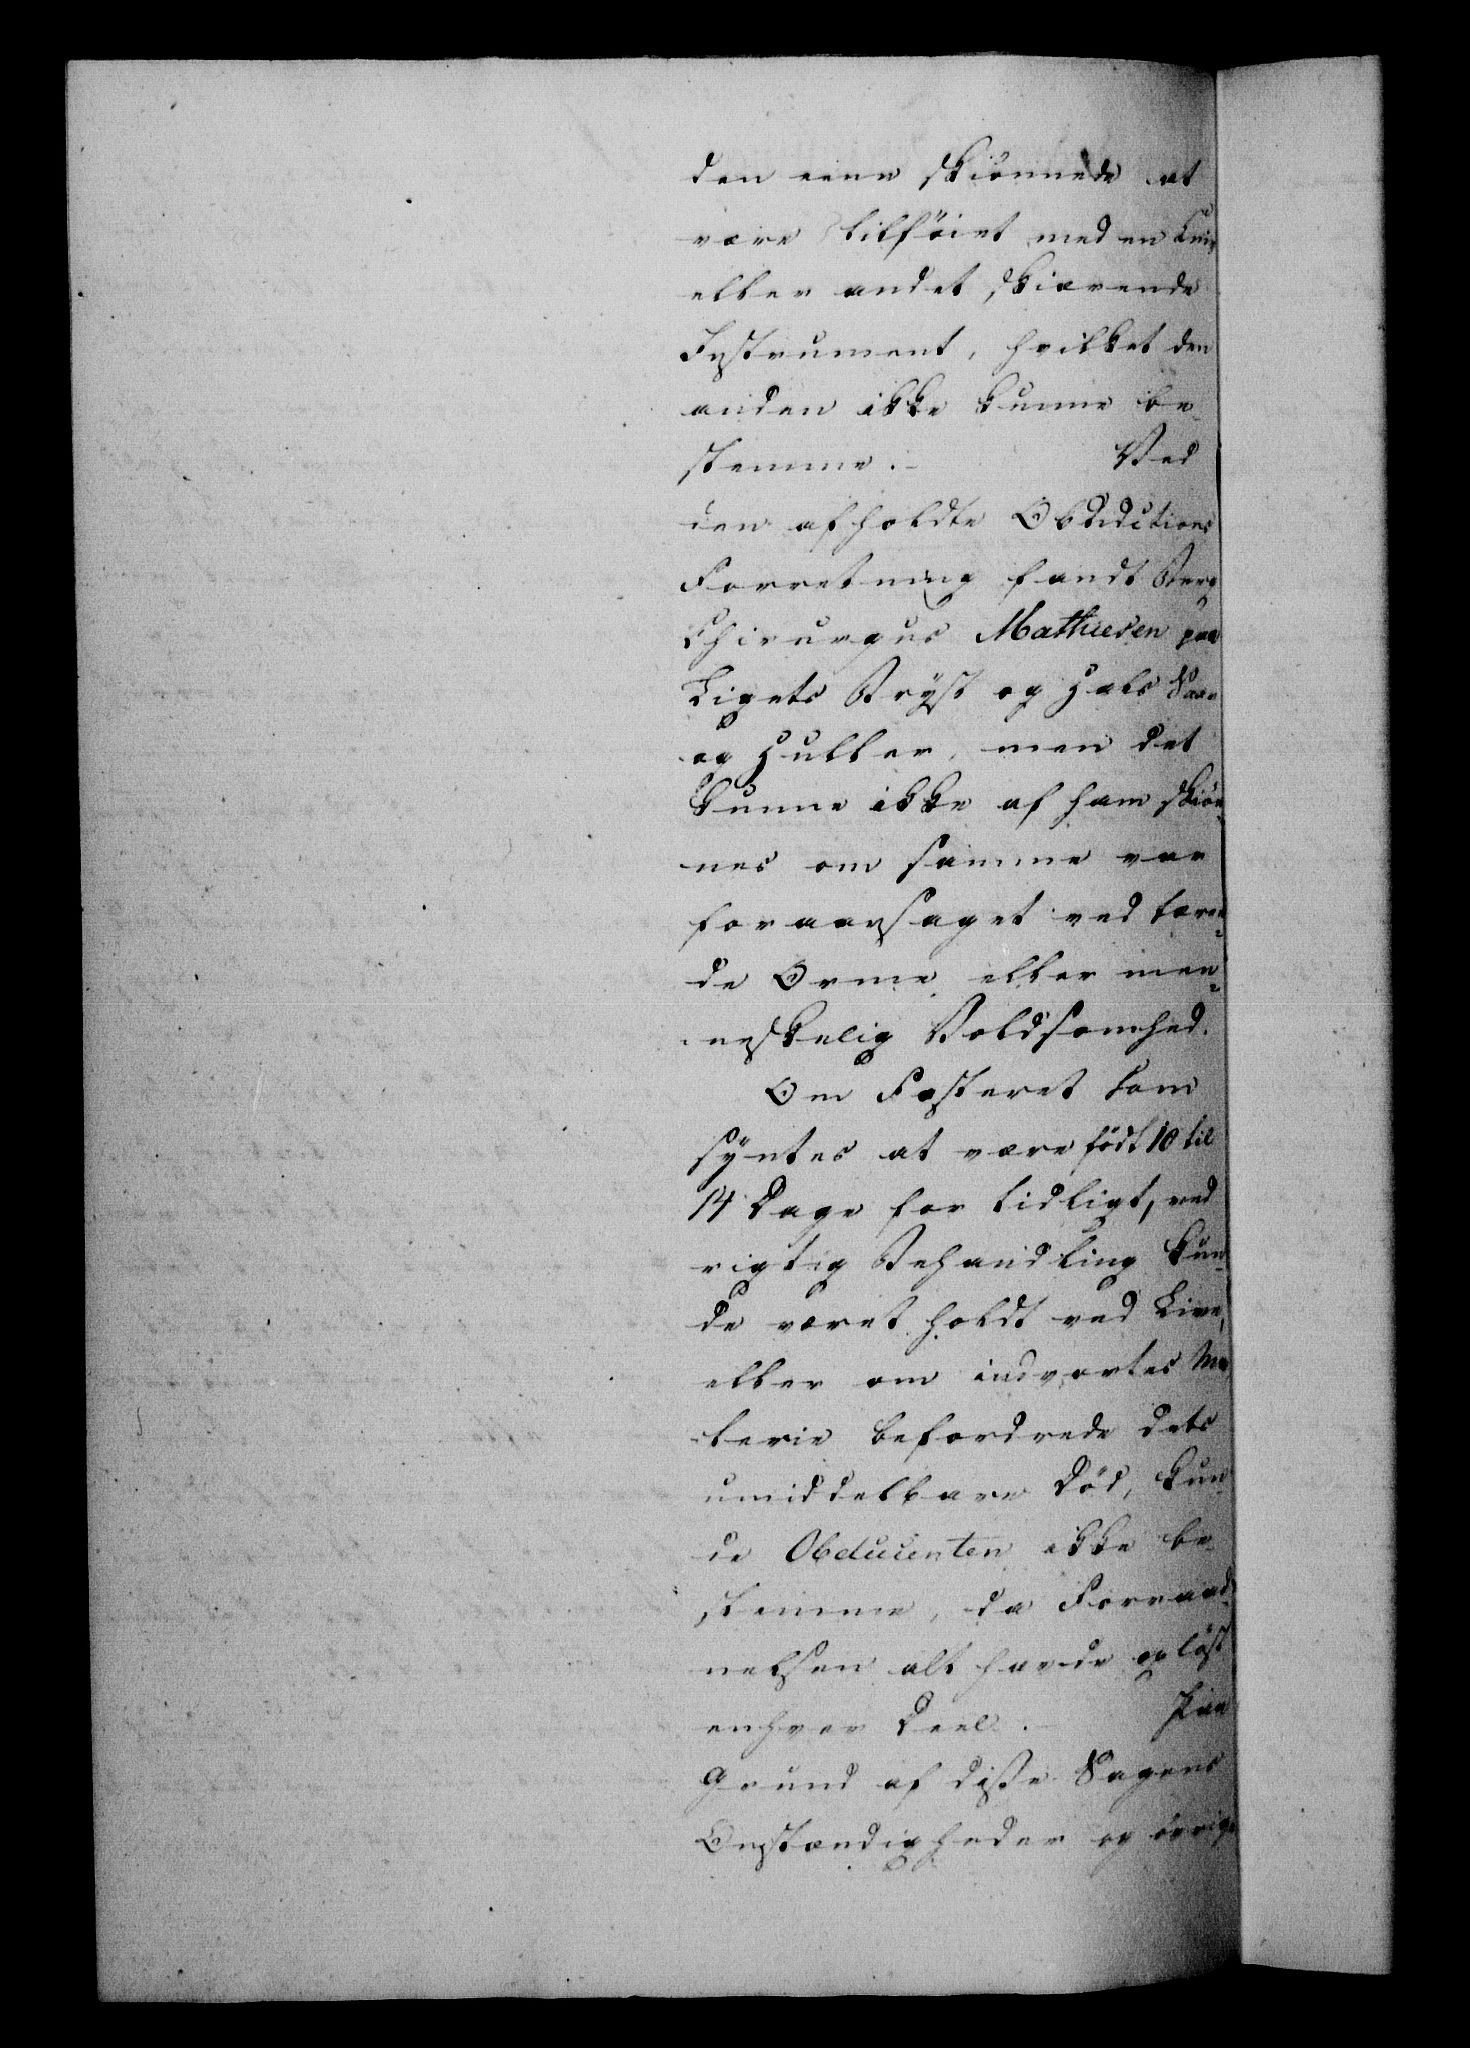 den eene skiönnede at
være tilföiet med en Kniv
eller andet skiærende
Instrument, hvilket den
anden ikke kunne be-
stemme. – Ved
den afholdte Obductions
Forretning fandt Berg
Chirurgus Mathiesen paa
Ligets Bryst og Hals Saar
og Huller, men det
kunne ikke af ham skiön-
nes om samme var
foraarsaget ved tæren-
de Orme eller men-
neskelig Voldsomhed.
Om Fosteret som
syntes at være födt 10 til
14 Dage for tidligt, ved
rigtig Behandling kun-
de været holdt ved Live,
eller om indvortes Ma
terie befordrede dets
umiddelbare Död, kun-
de Obducenten ikke be-
stemme, da Forraad-
nelsen alt havde oplöst
enhver Deel. – Paa
Grund af disse Sagens
Omstændigheder og övrige